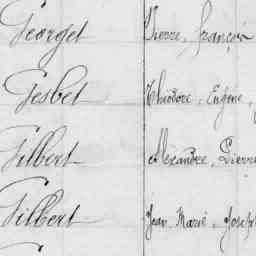 Georget Pierre, françois
Gesbet Théodore, Eugène,
Gilbert Alexandre, Pierre
Gilbert Jean Marie, Joseph